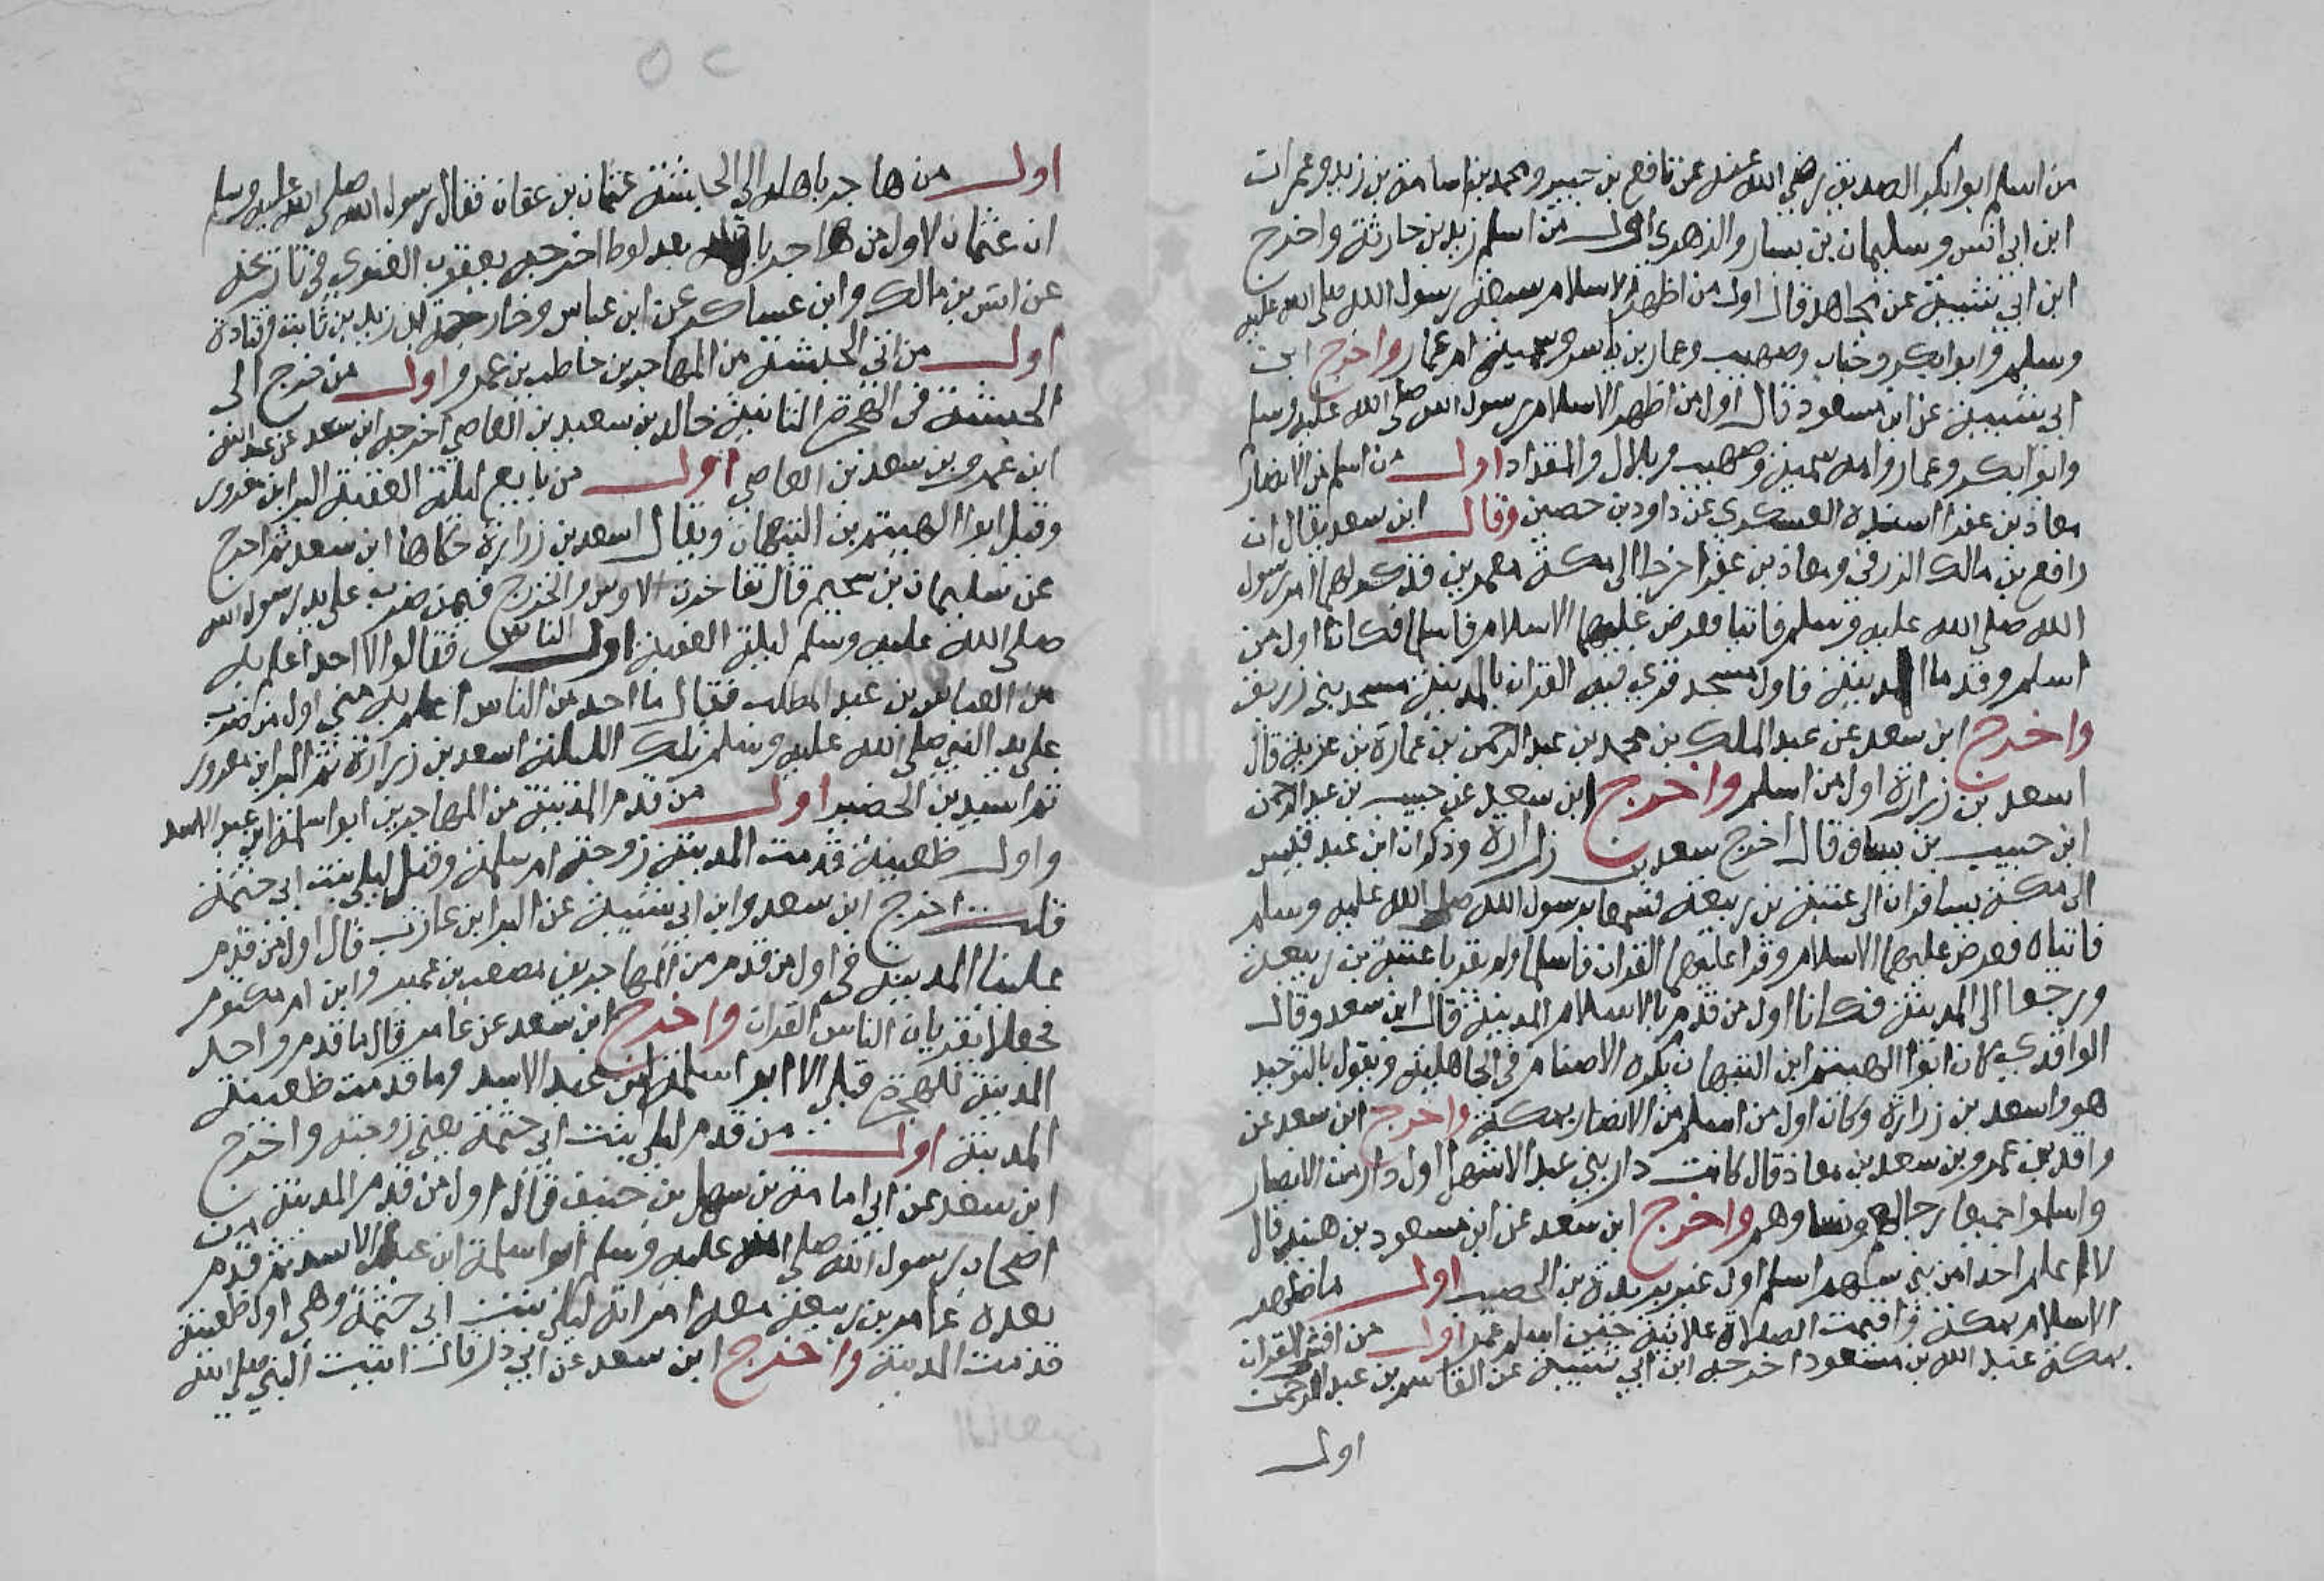 من اسلم ابوا بكر الصديق رضي الله عنه عن نافع بن جبير ومحمد بن اسامة بن زيد وعمران
ابن ابي انس وسليمان بن يسار والزهري اول من اسلم زيد بن حارثة واخرج
ابن ابي شيبة عن مجاهد قال اول من اظهر الاسلام سبعة رسول الله صلى الله عليه
وسلم وابوا بكر وخباب وصهيب وعمار بن ياسر وسمية ام عمار واخرج ابن
ابي شيبة عن ابن مسعود قال اول من اظهر الاسلام رسول الله صلى الله عليه وسلم
وابوا بكر وعمار وامه سمية وصهيب وبلال والمقداد اول من اسلم من الانصار
معاذ بن عفرا اسنده العسكري عن داود بن حصين وقال ابن سعد يقال ان
رافع بن مالك الزرقي ومعاذ بن عفرا خرجا الى مكة معمرين فذكر لهما امر رسول
الله صلى الله عليه وسلم فاتيا فعرض عليهما الاسلام فاسلما فكانا اول من
اسلم وقدما المدينة فاول مسجد قري فيه القران بالمدينة مسجد بني زريق
واخرج ابن سعد عن عبد الملك بن محمد بن عبد الرحمن بن عمارة بن غزية قال
اسعد بن زرارة اول من اسلم واخرج ابن سعيد عن خبيب بن عبد الرحمن
ابن خبيب بن يساف قال اخرج سعد بن زرارة وذكوان ابن عبد قيس
الى مكة يسافران الى عتبة بن ربيعة فسمعا برسول الله صلى الله عليه وسلم
فاتياه فعرض عليهما الاسلام وقرا عليهما القران فاسلما ولم يقربا عتبة بن ربيعة
ورجعا الى المدينة فكانا اول من قدم بالاسلام المدينة قال ابن سعد وقال
الواقدي كان ابوا الهيثم ابن التيهان يكره الاصنام في الجاهلية ويقول بالتوحيد
هو واسعد بن زرارة وكان اول من اسلم من الانصار بمكة واخرج ابن سعد عن
واقد بن عمرو بن سعد بن معاذ قال كانت دار بني عبد الاشهل اول دار من الانصار
واسلموا جميعا رجالهم ونساوهم واخرج ابن سعد عن ابن مسعود بن هنيد قال
لا اعلم احدا من بني سهم اسلم اول غير بريدة بن الحصيب اول ما ظهر
الاسلام بمكة واقيمت الصلاة علانية حين اسلم عمر اول من افشى القران
بمكة عبد الله بن مسعود اخرجه ابن ابي شيبة عن القاسم بن عبد الرحمن
اول
اول من هاجر باهله الى الحبشة عثمان بن عفان فقال رسول الله صلى الله عليه وسلم
ان عثمان لاول من هاجر باهله بعد لوط اخرجه يعقوب الفسوي في تاريخه
عن انس بن مالك وابن عساكر عن ابن عباس وخارجة ابن زيد بن ثابت وقتادة
اول من اتى الحبشة من المهاجرين حاطب بن عمرو اول من خرج الى
الحبشة في الهجرة الثانية خالد بن سعيد بن العاصي اخرجه ابن سعد عن عبد الله
ابن عمرو بن سعد بن العاصي اول من بايع ليلة العقبة البرا بن معرور
وقيل ابوا الهيثم بن التيهان ويقال اسعد بن زرارة حكاها ابن سعد ثم اخرج
عن سليمان بن سحيم قال تفاخرت الاوس والخزرج فيمن ضرب على يد رسول الله
صلى الله عليه وسلم ليلة العقبة اول الناس فقالوا لا احد اعلم به
من العباس بن عبد المطلب فقال ما احد من الناس اعلم به مني اول من ضرب
على يد النبي صلى الله عليه وسلم تلك الليلة اسعد بن زرارة ثم البرا بن معرور
ثم اسيد بن الحضير اول من قدم المدينة من المهاجرين ابو اسلمة ابن عبد الاسد
واول ظعينة قدمت المدينة زوجته ام سلمة وقيل ليلى بنت ابي حثمة
قلت اخرج ابن سعد وابن ابي شيبة عن البرا بن عازب قال اول من قدم
علينا المدينة في اول من قدم من المهاجرين مصعب بن عمير وابن ام مكتوم
فجعلا يقريان الناس القران واخرج ابن سعد عن عامر قال ما قدم واحد
المدينة للهجرة قبلي الا ابو اسلمة ابن عبد الاسد وما قدمت ظعينة
المدينة اول من قدم ليلى بنت ابي حثمة يعني زوجته واخرج
ابن سعد عن ابي امامة بن سهل بن حنيف قال اول من قدم المدينة من
اصحاب رسول الله صلى الله عليه وسلم ابو اسلمة ابن عبد الاسد ثم قدم
بعده عامر بن ربيعة معه امراته ليلى بنت ابي حثمة وهي اول ظعينة
قدمت المدينة واخرج ابن سعد عن ابي ذر قال اتيت النبي صلى الله